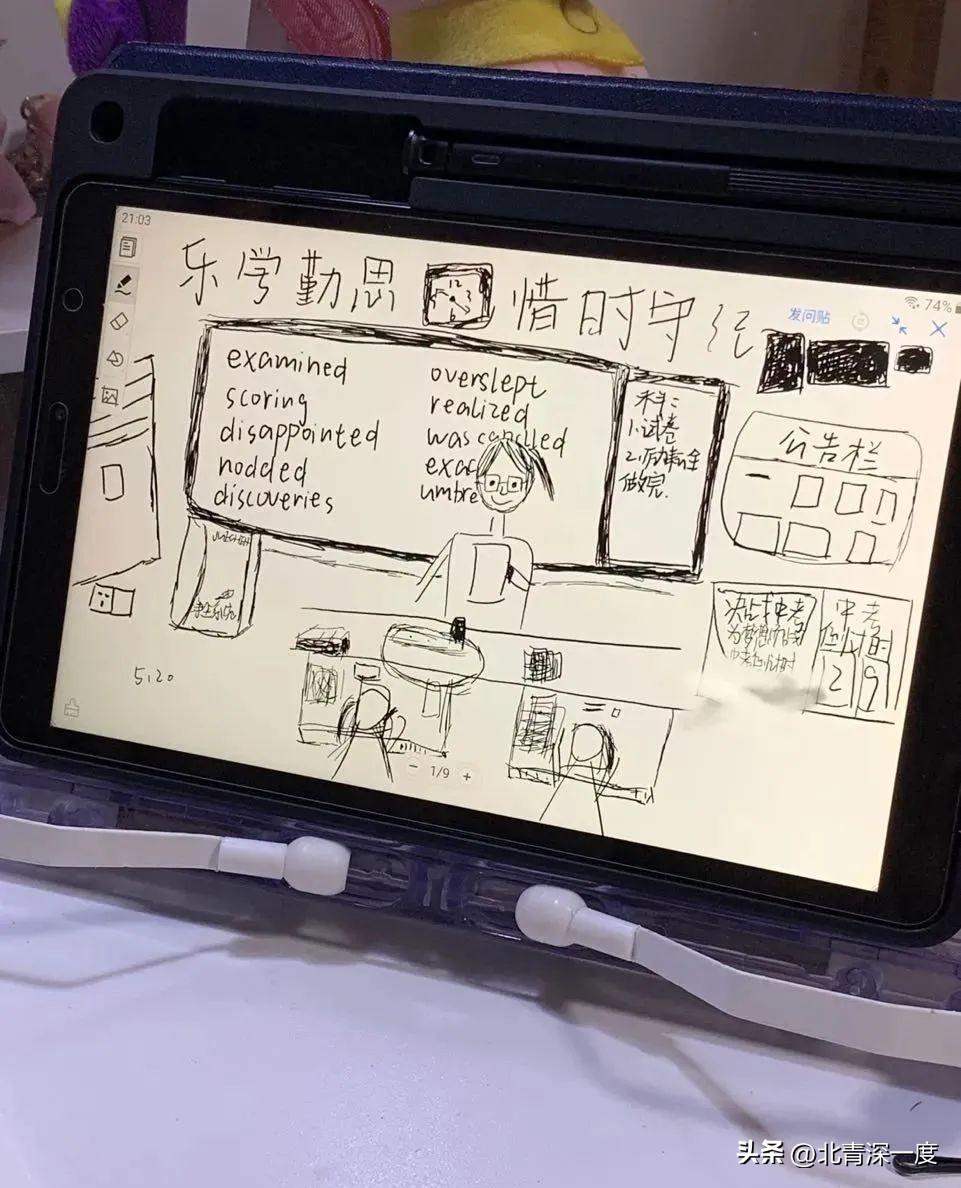 21:03
74%
乐学勤思 惜时守纪
发问贴
examined
scoring
disappointed
nodded
discoveries
overslept
realized
was cancelled
exac
umbre
科:
1.试卷
2.
做完.
公告栏
决战中考
中考
倒计时
29
5.20
1/9
头条 @北青深一度